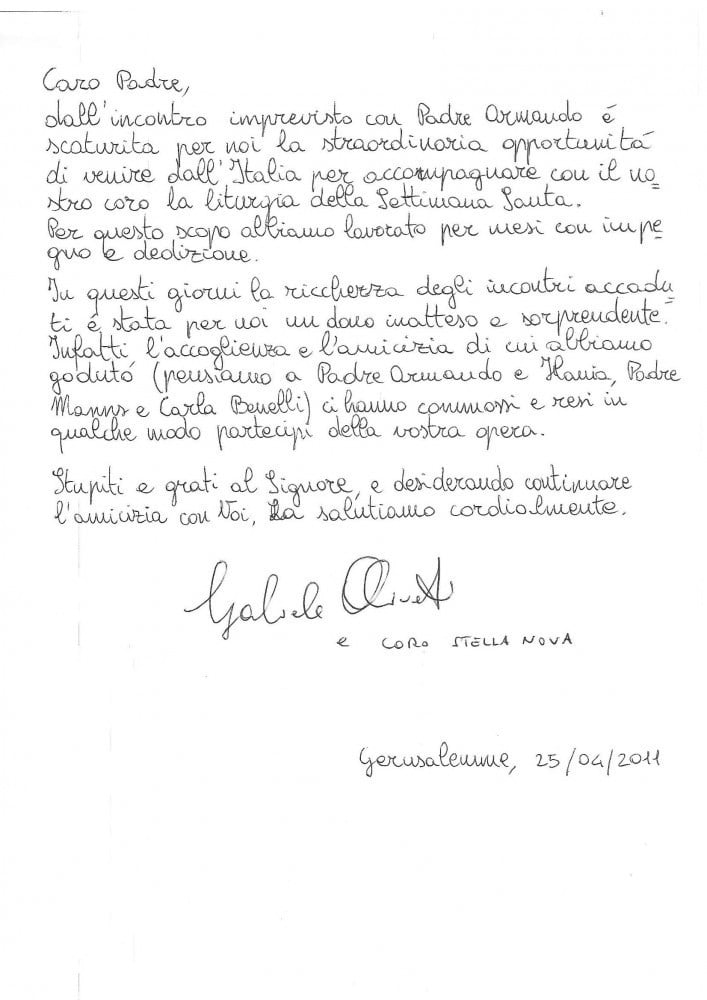 Caro Padre,
dall'incontro imprevisto con Padre Armando é
scaturita per noi la straordinaria opportunitá
di venire dall'Italia per accompagnare con il no_
stro coro la liturgia della Settimana Santa.
Per questo scopo abbiamo lavorato per mesi con impe_
gno e dedizione.
In questi giorni la ricchezza degli incontri accadu_
ti é stata per noi un dono inatteso e sorprendente.
Infatti l'accoglienza e l'amicizia di cui abbiamo
goduto (pensiamo a Padre Armando e Hania, Padre
Manns e Carla Benelli) ci hanno commossi e resi in
qualche modo partecipi della vostra opera.
Stupiti e grati al Signore, e desiderando continuare
l'amicizia con Voi, La salutiamo cordialmente.
Gabriele
e CORO STELLA NOVA
Gerusalemme, 25/04/2011